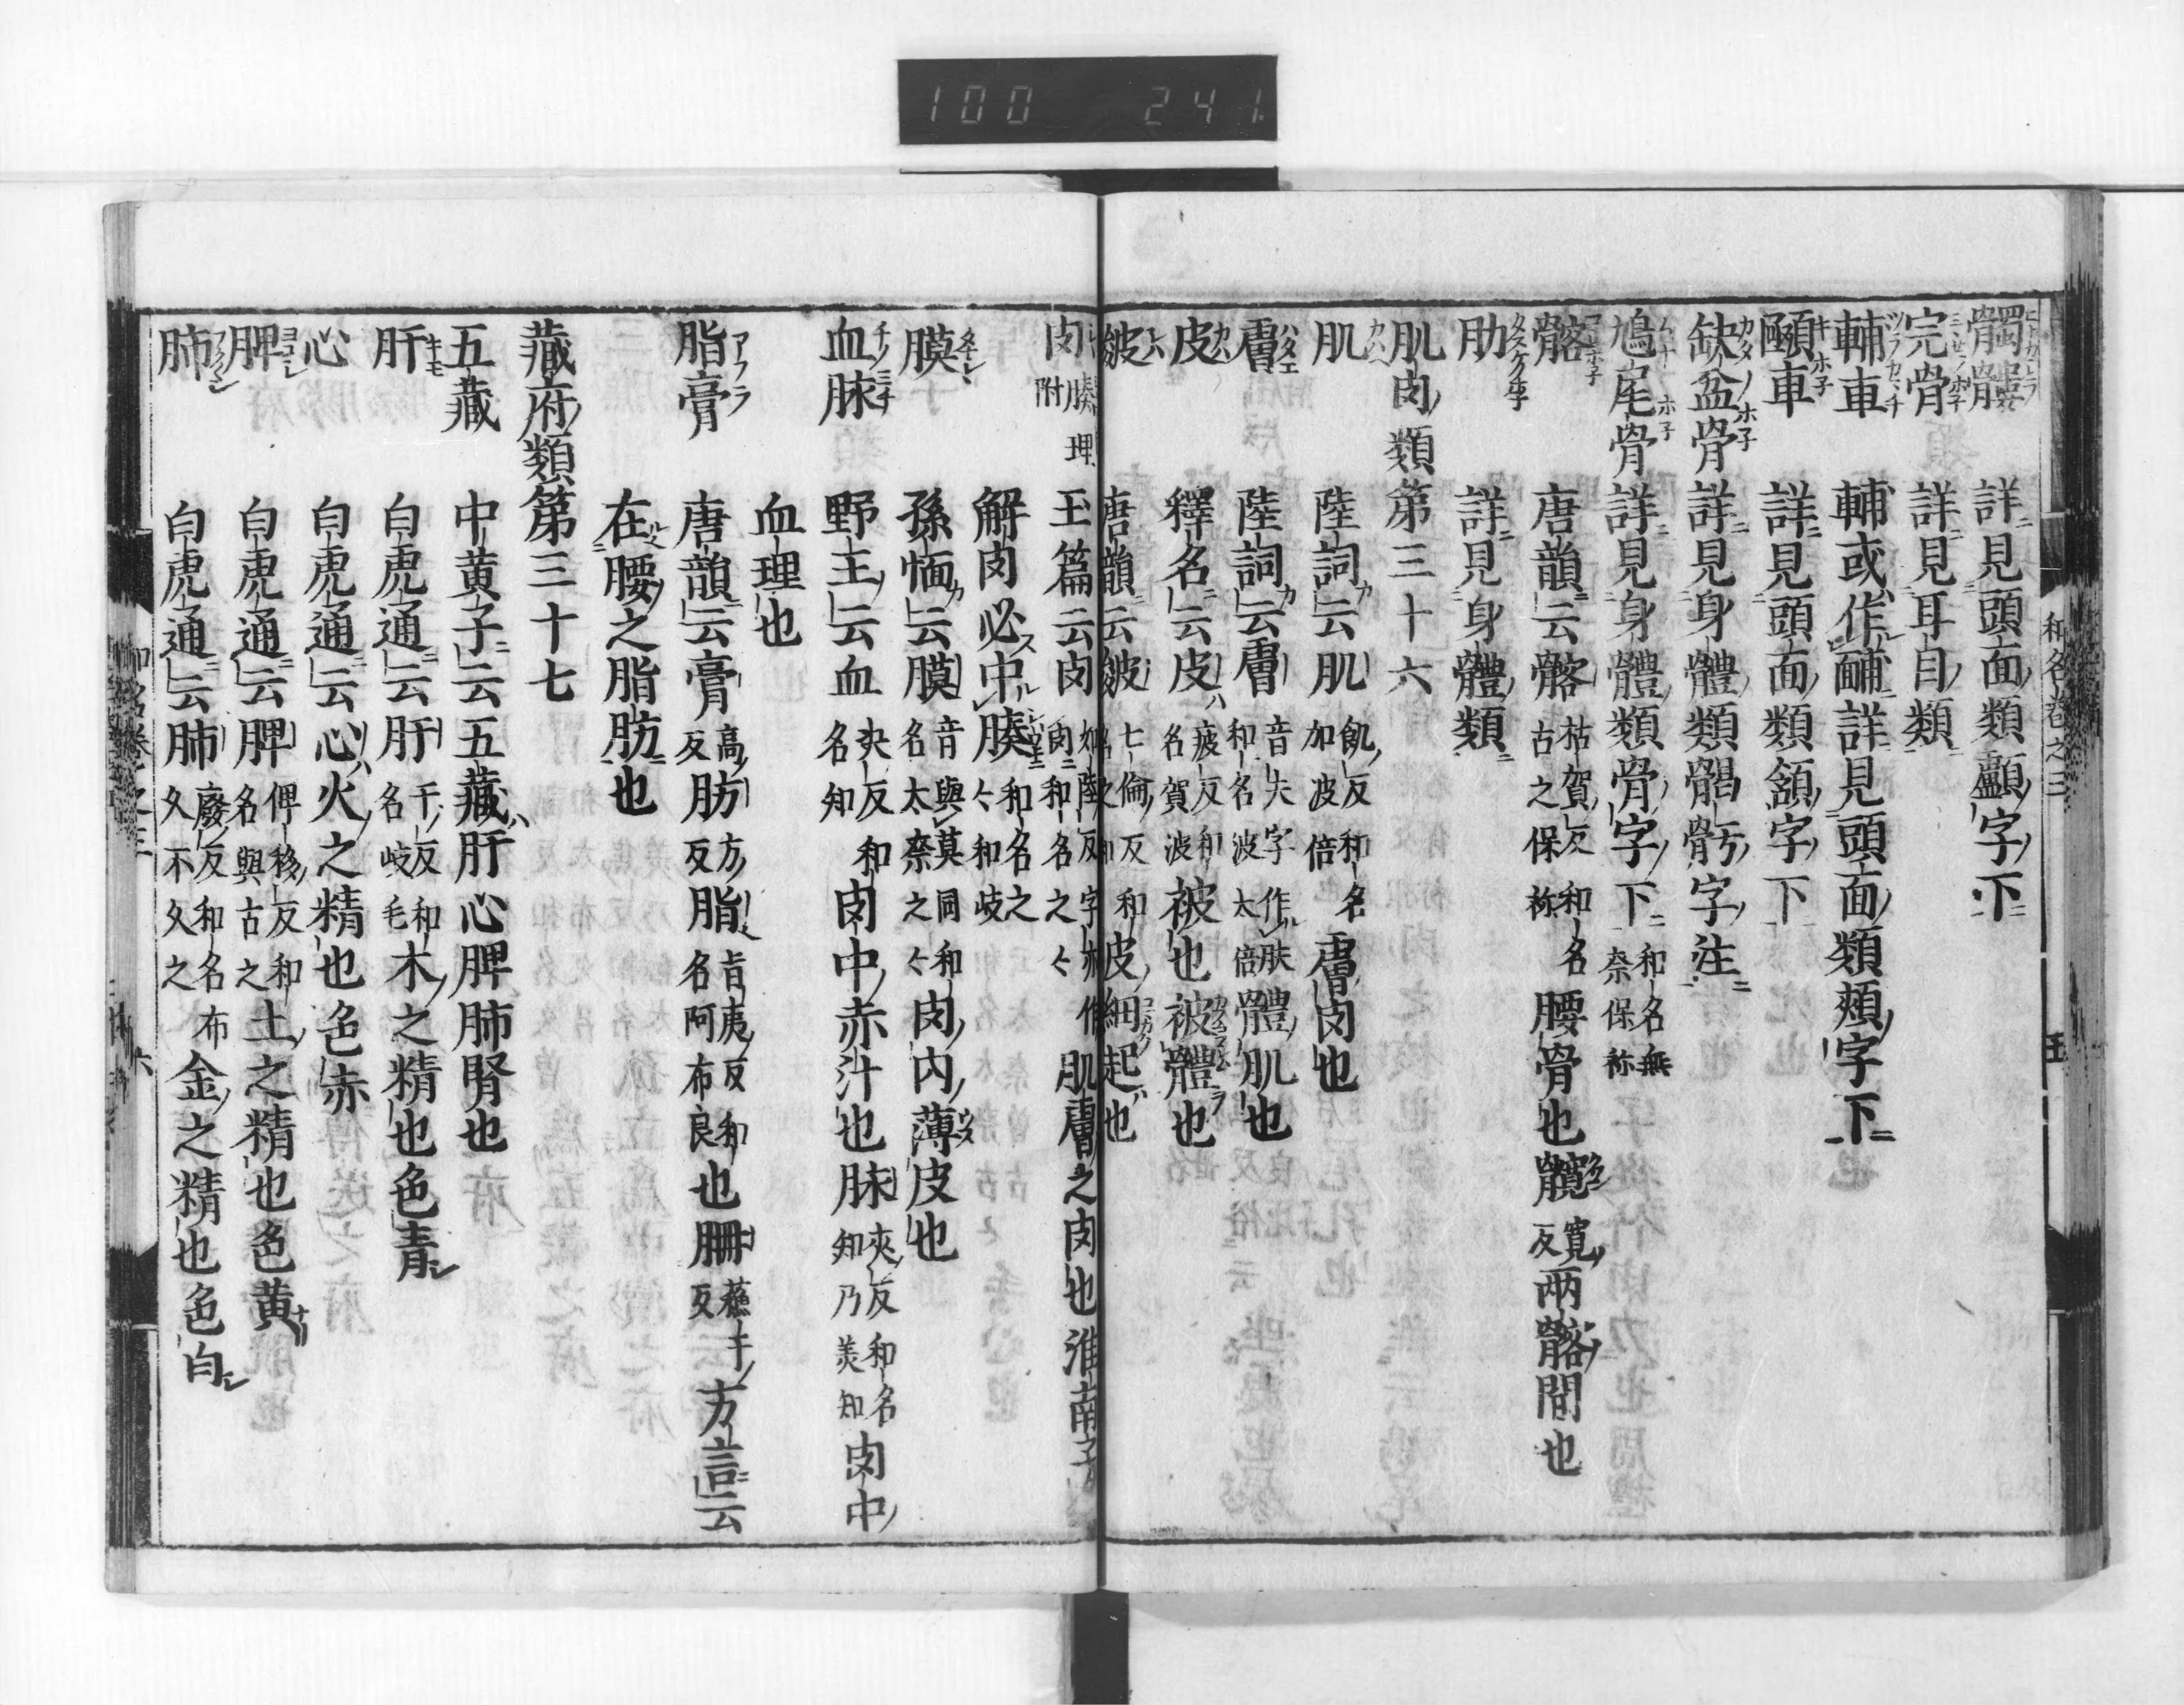 100 241.
和名卷之三
五
髑髏 詳見頭面類顱字下
完骨 詳見耳目類
輔車 輔或作䩉詳見頭面類頰字下
頤車 詳見頭面類頷字下
缺盆骨 詳見身體類𩩲骬字注
鳩尾骨 詳見身體類骨字下 和名無奈保祢
髂 唐韻云髂 枯賀反和名古之保祢 腰骨也髖 寛反 兩髂間也
肋 詳見身體類
肌肉類第三十六
肌 陸詞云肌 飢反和名加波倍 膚肉也
膚 陸詞云膚 音夫字作肤和名波太倍 體肌也
皮 釋名云皮 疲反和名賀波 被也被體也
皴 唐韻云皴 七倫反和 皮細起也
肉 腠理附 玉篇云肉 如陸反字亦作和名之々 肌膚之肉也淮南子
解肉必中腠 和名之々和岐
膜 孫愐云膜 音與莫同和名太奈之々 肉内薄皮也
血脉 野王云血 决反和名知 肉中赤汁也脉 夾反和名知乃美知 肉中
血理也
脂膏 唐韻云膏 高反 肪 方反 脂 旨夷反和名阿布良 也𦙱 蘓干反 方言云
在腰之脂肪也
藏府類第三十七
五藏 中黄子云五藏肝心脾肺腎也
肝 白虎通云肝 干反和名岐毛 木之精也色青
心 白虎通云心火之精也色赤
脾 白虎通云脾 俾移反和名與古之 土之精也色黄
肺 白虎通云肺 廢反和名布久不久之 金之精也色白
六